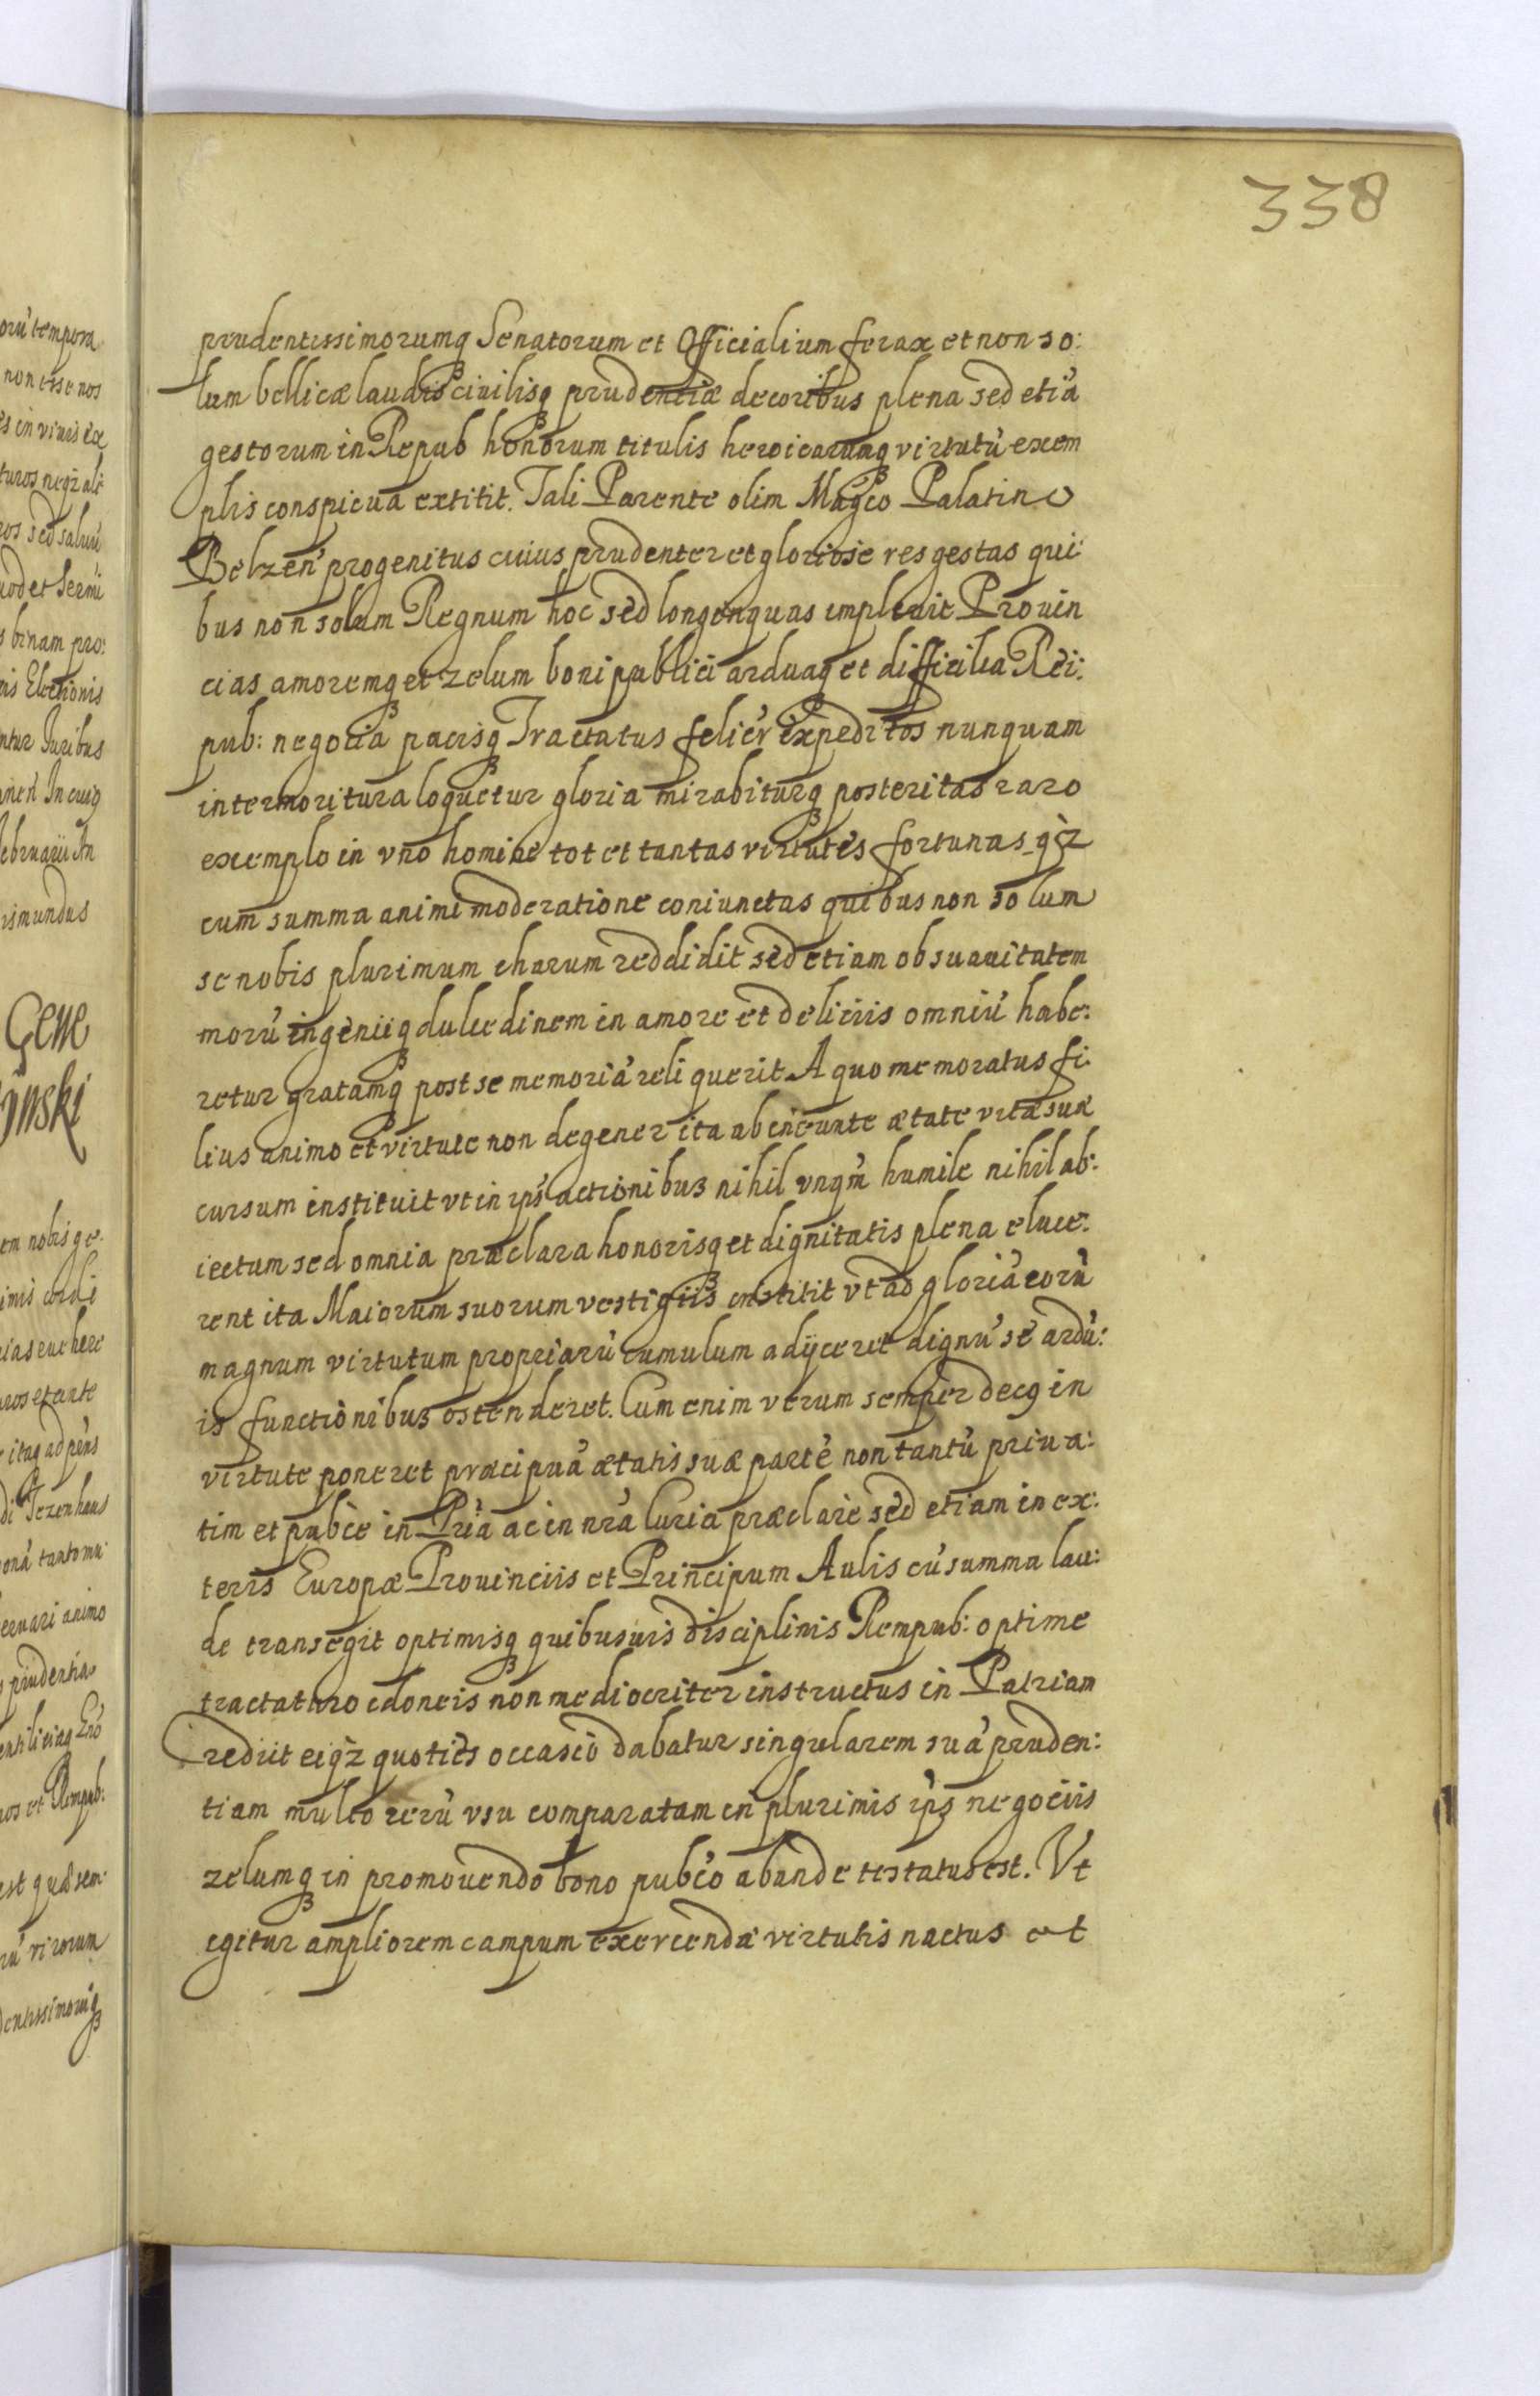 338
prudentissimorumq₃ Senatorum et Officialium ferax et non so:
lum bellicæ laudis ciuilisq₃ prudentiæ decoribus plena sed etiá
gestorum in Repub honorum titulis heroicarumq₃ virtutú exem
plis conspicua extitit. Tali Parente olim Magco Palatino
Belzeń progenitus cuius prudenter et gloriose res gestas qui
bus non solum Regnum hoc sed longinquas impleuit Prouin
cias amoremq₃ et zelum boni publici arduaq₃ et difficilia Rei:
pub: negotia pacisq₃ Tractatus felicr expeditos nunquam
intermoritura loquetur gloria mirabiturq₃ posteritas raro
exemplo in vno homine tot et tantas virtutes fortunas qz
cum summa animi moderatione coniunctas quibus non solum
se nobis plurimum charum reddidit sed etiam ob suauitatem
morú ingeniiq₃ dulcedinem in amore et deliciis omniú habe:
retur gratamq₃ post se memoriá reliquerit. A quo memoratus fi
lius animo et virtute non degener ita ab ineunte ætate vitæ suæ
cursum instituit vt in ips actionibus nihil vnqm humile nihil ab:
iectum sed omnia præclara honorisq₃ et dignitatis plena eluce:
rent ita Maiorum suorum vestigiis institit vt ad gloriá eorú
magnum virtutum propriarú cumulum adijceret dignú se ardú:
is functionibus ostenderet. Cum enim verum semper decq in
virtute poneret præcipuá ætatis suæ parté non tantú priua:
tim et pubce in Pria ac in nrá Curia præclare sed etiam in ex:
teris Europæ Prouinciis et Principum Aulis cú summa lau:
de transegit optimisq₃ quibusuis disciplinis Rempub: optime
tractaturo idoneis non mediocriter instructus in Patriam
rediit eiqz quoties occasio dabatur singularem suá pruden:
tiam multo rerú vsu comparatam in plurimis ips negociis
zelumq₃ in promouendo bono pubco abunde testatus est. Vt
igitur ampliorem campum exercendæ virtutis nactus et